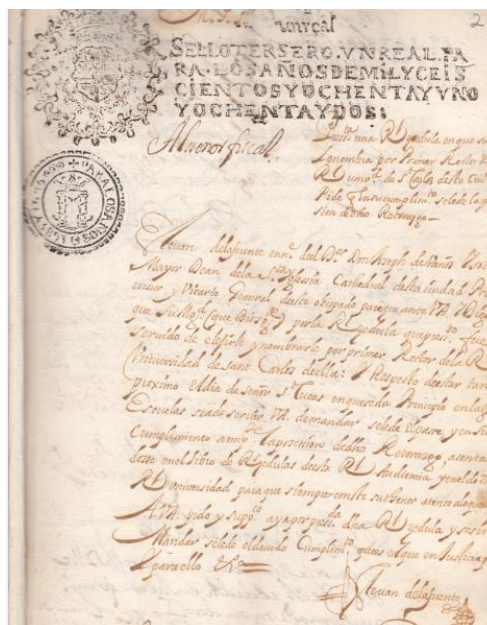 M. P. S.
un real
2
SELLO TERSERO, VN REAL, PA
RA LOS AÑOS DE MIL Y CEIS
CIENTOS Y OCHENTA Y VNO
Y OCHENTA Y DOS:
Al señor fiscal
una Rl çedula en que su
le nombra por Primer Rector
Rl univ.d de s.n Carlos desta Ciu
Pide su cumplim.to se le de la po
sion de dho Retorazgo
PARA LOS AÑOS D
Estevan de la fuente en n.e del D.or Don Joseph de Baños
Mayor Dean de la s.ta yglesia Cathedral desta ciudad
visor y Vicario General deste obispado paresco ante VA. Digo
que su Mag.d (que Dios g.e) por la Rl çedula que presento fue
servido de elegirle y nombrarle por primer Rector de la R
Universidad de san Carlos de ella: Y Respecto de estar tan
proximo el dia de señor s.n Lucas en que se da Principio en las
Escuelas se a de servir VA. de mandar se le de el pase, y en su
Cumplimiento la possession de dho Retorazgo, asentan
dose en el libro de Rs çedulas desta Rl Audiencia y en el de
Rl Universidad para que siempre conste
A VA. pido y supp.co aya por presentada dha Rl çedula y se sirva
Mandar se le de el devido Cumplim.to que es en Justicia
para ello &.a
Estevan de la fuente